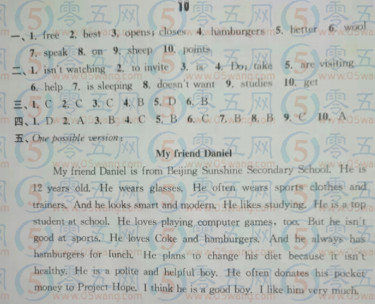 10
一、1. free 2. best 3. opens; closes 4. hamburgers 5. better 6. wool
7. speak 8. on 9. sheep 10. points
二、1. isn't watching 2. to invite 3. is 4. Do; take 5. are visiting
6. help 7. is sleeping 8. doesn't want 9. studies 10. get
三、1. C 2. C 3. C 4. B 5. D 6. B
四、1. D 2. A 3. B 4. C 5. B 6. C 7. B 8. B 9. C 10. A
五、One possible version:
My friend Daniel
My friend Daniel is from Beijing Sunshine Secondary School. He is
12 years old. He wears glasses. He often wears sports clothes and
trainers. And he looks smart and modern. He likes studying. He is a top
student at school. He loves playing computer games, too. But he isn't
good at sports. He loves Coke and hamburgers. And he always has
hamburgers for lunch. He plans to change his diet because it isn't
healthy. He is a polite and helpful boy. He often donates his pocket
money to Project Hope. I think he is a good boy. I like him very much.